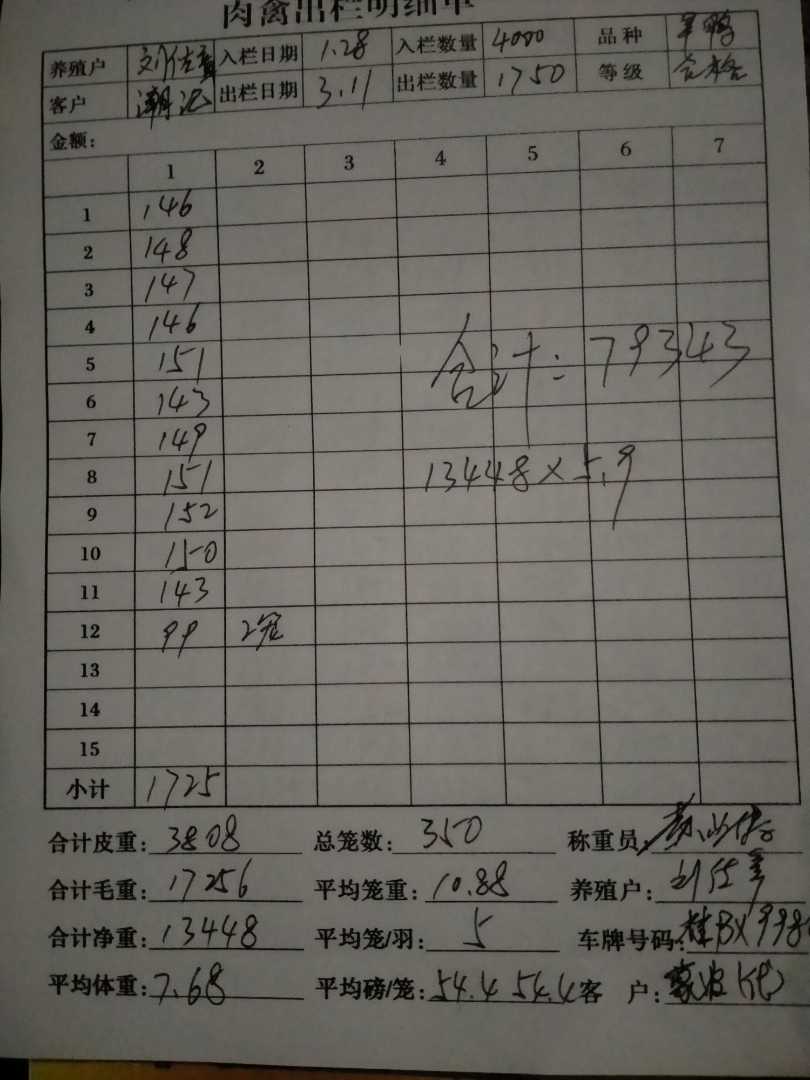 肉禽出栏明细单
养殖户 入栏日期 1.28 入栏数量 4000 品种 半鸭
客户 潮汛 出栏日期 3.11 出栏数量 1750 等级 合格
金额:
1 2 3 4 5 6 7
1 146
2 148
3 147
4 146
5 151
合计: 79343
6 143
7 149
8 151 13448×5.9
9 152
10 150
11 143
12 99 2笼
13
14
15
小计 1725
合计皮重: 3808 总笼数: 350 称重员:
合计毛重: 17256 平均笼重: 10.88 养殖户:
合计净重: 13448 平均笼/羽: 5 车牌号码: 桂BX998
平均体重: 7.68 平均磅/笼: 54.4 54.4 客户: